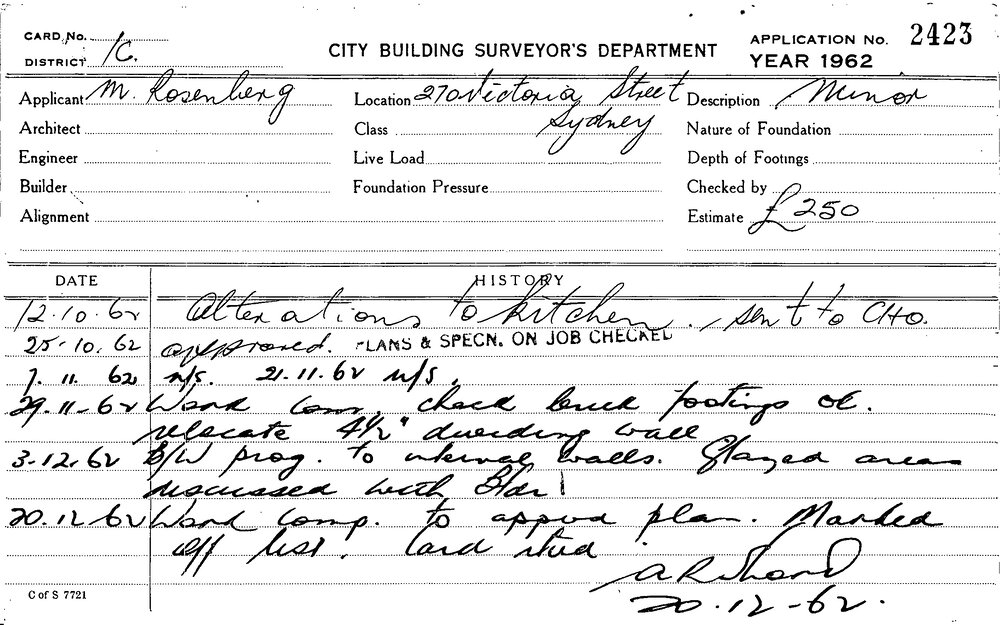 CARD No.
DISTRICT 1C.
CITY BUILDING SURVEYOR'S DEPARTMENT
APPLICATION No. 2423
YEAR 1962
Applicant M. Rosenberg
Location 270 Victoria Street
Sydney
Description Minor
Architect
Class
Nature of Foundation
Engineer
Live Load
Depth of Footings
Builder
Foundation Pressure
Checked by
Alignment
Estimate £250
DATE HISTORY
12.10.62 Alterations to kitchen. sent to CHO.
25.10.62 approved. PLANS & SPECN. ON JOB CHECKED
7.11.62 n/s. 21.11.62 n/s.
29.11.62 Work com. check brick footings ok.
relocate 4½" dividing wall
3.12.62 B/W prog. to internal walls. Glazed areas
discussed with Bldr
20.12.62 Work comp. to appvd plan. Marked
off list. Card
20.12-62.
C of S 7721